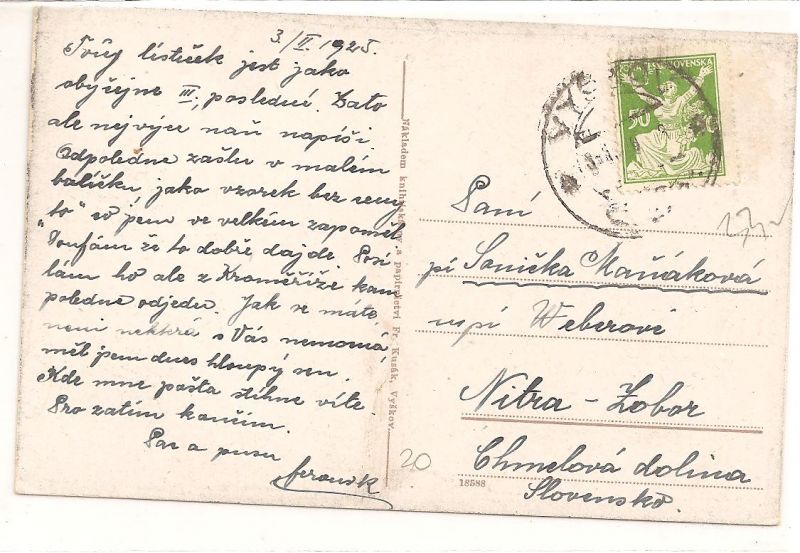 3./II. 1925.
Tvůj lísteček jest jako
obyčejne III, poslední. Zato
ale nejvíce naň napíši.
Odpoledne zašlu v malém
balíčku jako vzorek bez ceny
"to" co jsem ve velkém zapoměl
Doufám že to dobře dojde. Posí
lám ho ale z Kroměříže kam
poledne odjedu. Jak se máte,
není některá s Vás nemocná
měl jsem dnes hloupý sen.
Kde mne pošta stihne víte.
Pro zatím končím.
Pac a pusu
Nákladem knihtiskárny a papírnictví Fr. Kusák, Vyškov.
50
Paní
pí Sonička Maňáková
Weberové
Nitra-Zobor
Chmelová dolina
Slovensko.
20
18588